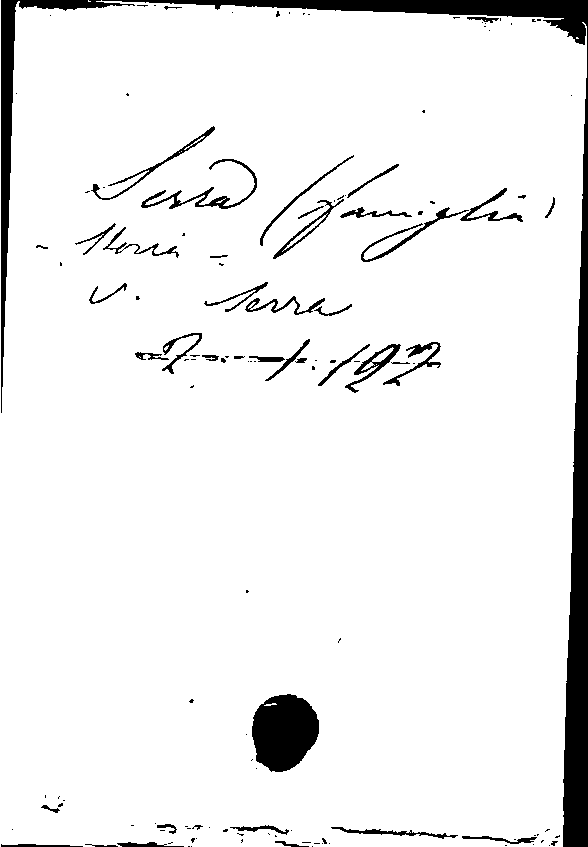 Serra (famiglia)
- Storia -
v. Serra